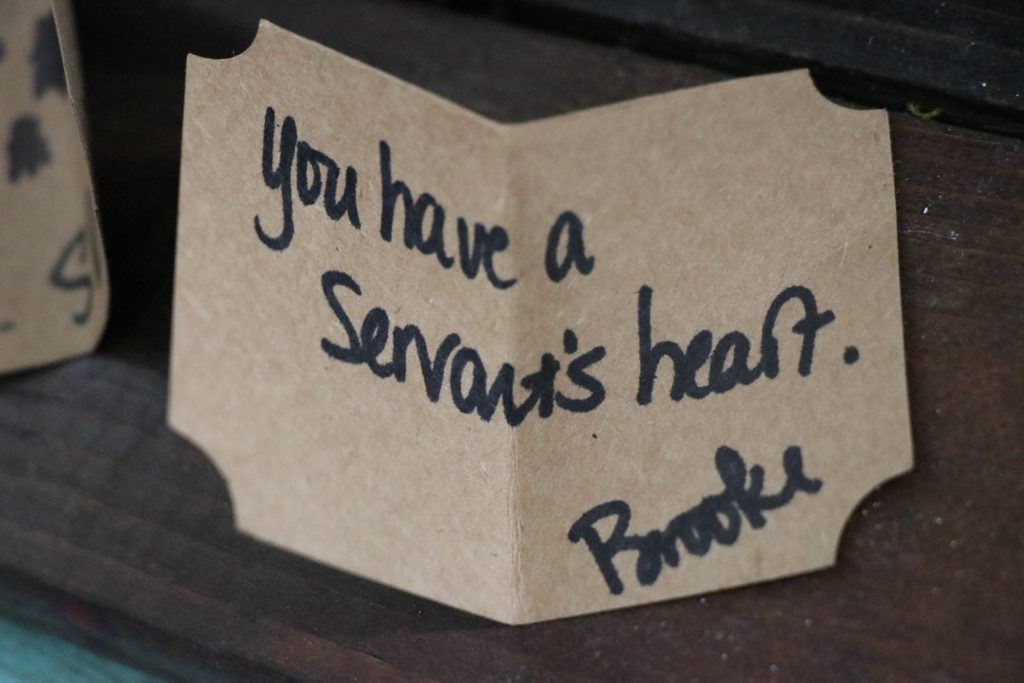 you have a
Servant's heart.
Brooke